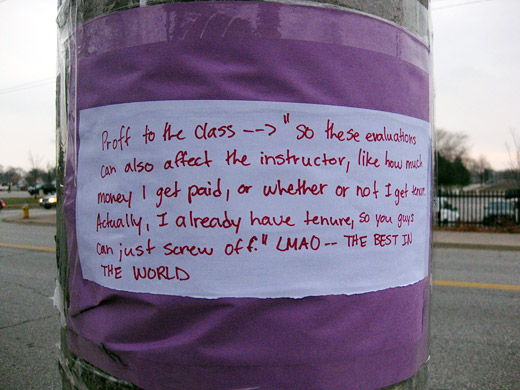 Proff to the class --> "So these evaluations
can also affect the instructor, like how much
money I get paid, or whether or not I get tenure.
Actually, I already have tenure, so you guys
can just screw off." LMAO -- THE BEST IN
THE WORLD